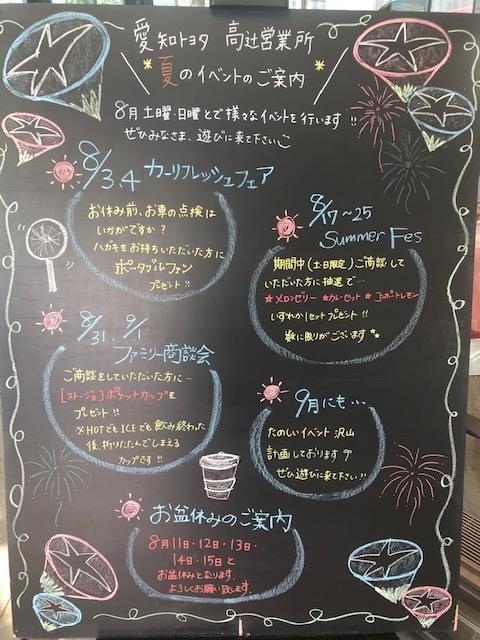 愛知トヨタ 高辻営業所
夏のイベントのご案内
8月 土曜・日曜とで様々なイベントを行います!!
ぜひみなさま、遊びに来て下さい
8/3.4 カーリフレッシュフェア
お休み前、お車の点検は
いかがですか?
ハガキをお持ちいただいた方に
ポータブルファン
プレゼント!!
8/17~25
Summer Fes
期間中(土日限定)ご商談して
いただいた方に抽選で…
★メロンゼリー ★カレーセット ★コンポートレモン
いずれか1セットプレゼント!!
数に限りがございます
8/31.9/1
ファミリー商談会
ご商談をしていただいた方に…
[ストージョ]ポケットカップを
プレゼント!!
※HOTでもICEでも飲み終わった
後、折りたたんでしまえる
カップです!!
9月にも…
たのしいイベント沢山
計画しております
ぜひ遊びに来て下さい!!
お盆休みのご案内
8月11日・12日・13日・
14日・15日と
お盆休みとなります。
よろしくお願い致します。